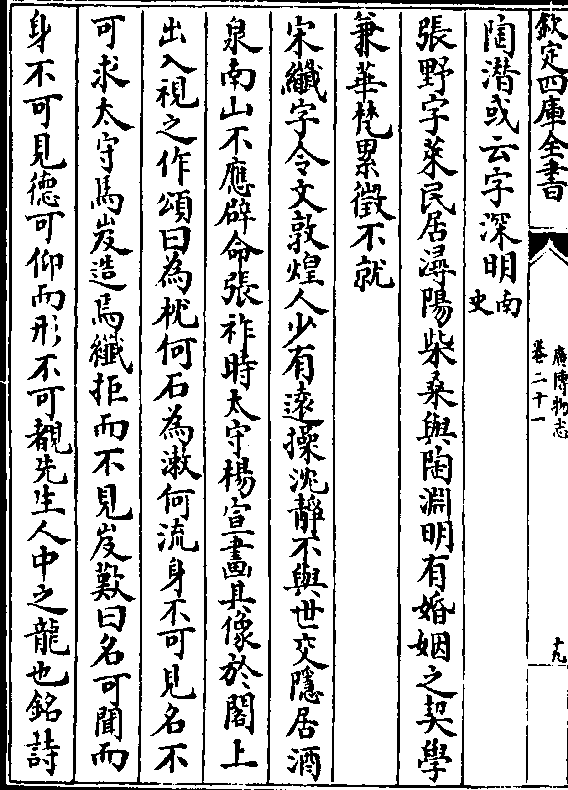 欽定四庫全書
廣博物志
卷二十一
十九
陶潛或云字深明南史
張野字萊民居潯陽柴桑與陶淵明有婚姻之契學
兼華梵累徵不就
宋纖字令文敦煌人少有遠操沈靜不與世交隱居酒
泉南山不應辟命張祚時太守楊宣畫其像於閣上
出入視之作頌曰為枕何石為漱何流身不可見名不
可求太守馬岌造焉纖拒而不見岌歎曰名可聞而
身不可見德可仰而形不可覩先生人中之龍也銘詩